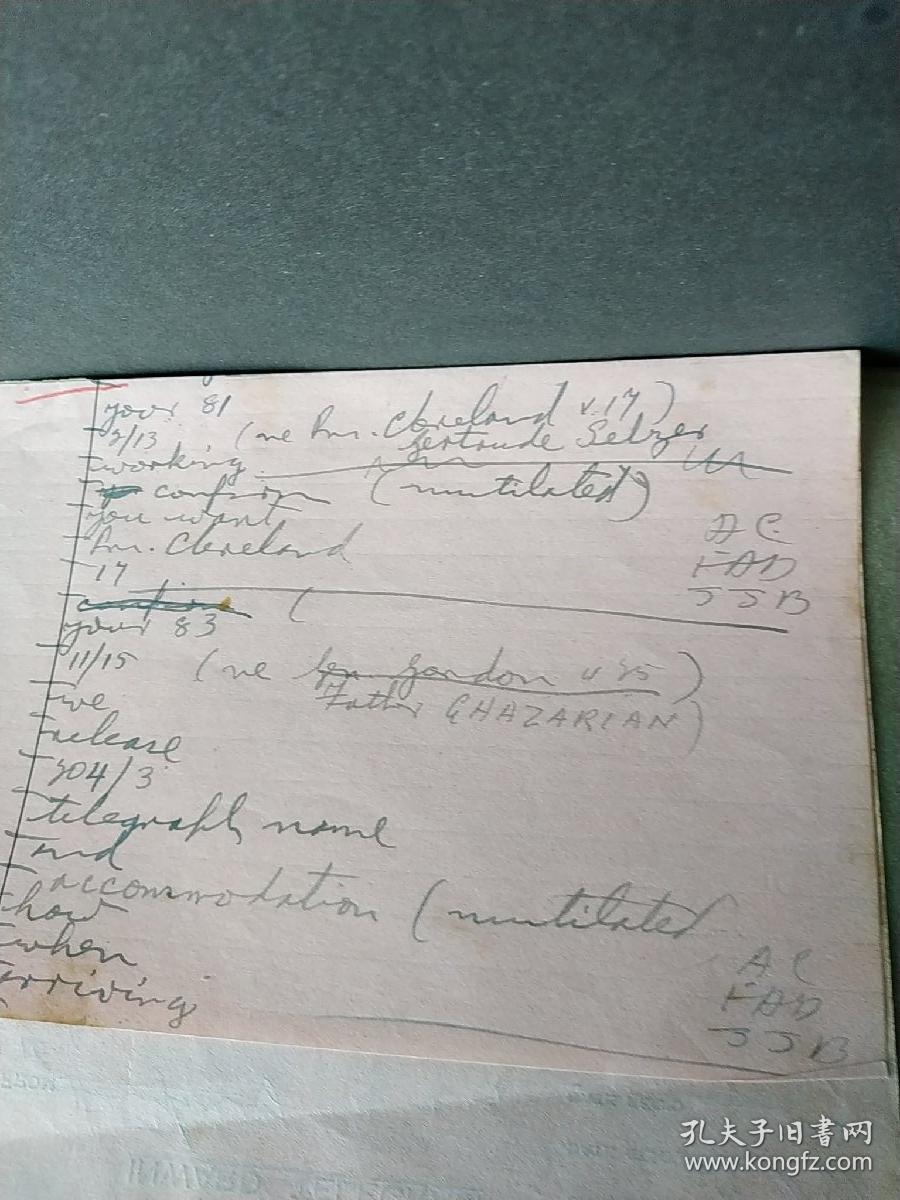 your 81
2/13 (re Pres. Cleveland v. 17)
Gertrude Selzer
working
confirm (mutilated)
you want
Pres. Cleveland
17
AC
FAD
JJB
your 83
11/15 (re Gordon v
Father GHAZARIAN)
we
release
204/3
telegraph name
and
accommodation (mutilated
how
when
arriving
AC
FAD
JJB
孔夫子旧书网
www.kongfz.com